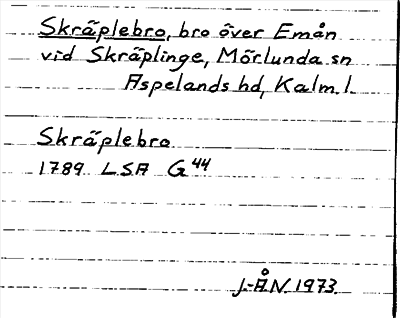 Skräplebro, bro över Emån
vid Skräplinge, Mörlunda sn
Aspelands hd, Kalm. l.
Skräplebro
1789 LSA G44
J.-Å.N. 1973